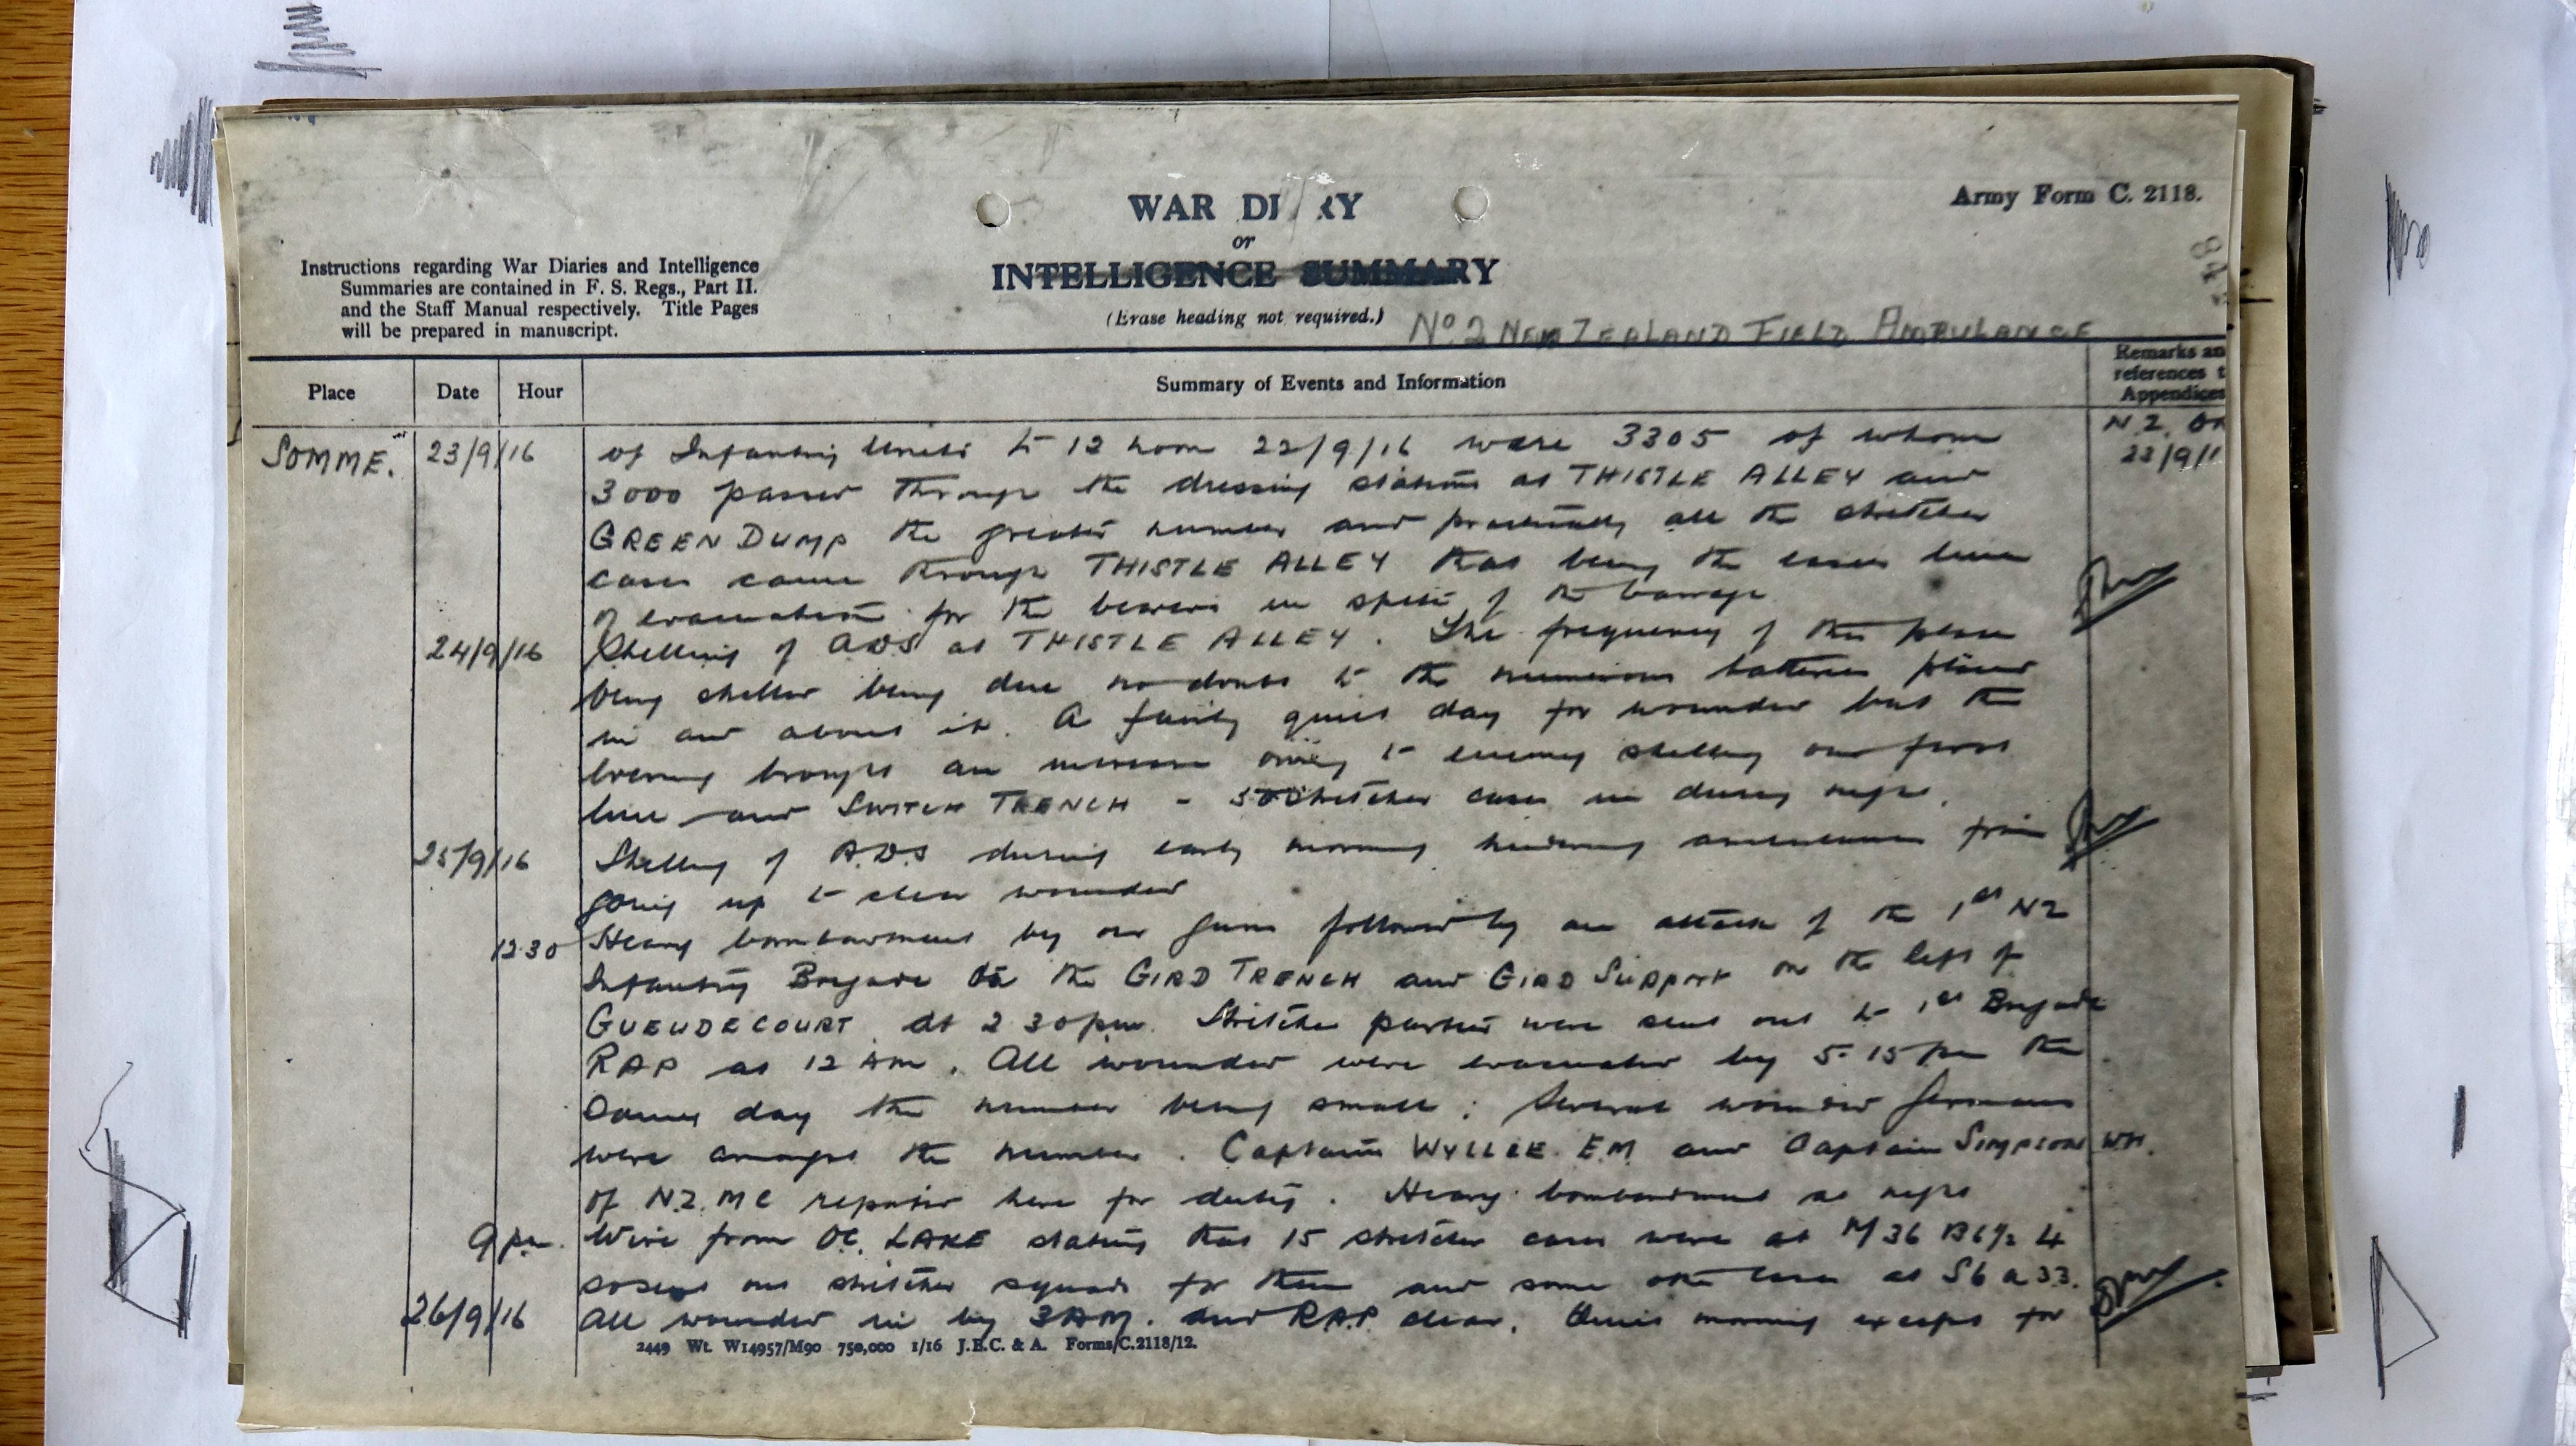 WAR DIARY
or
INTELLIGENCE SUMMARY
(Erase heading not required.)
Army Form C. 2118.
Instructions regarding War Diaries and Intelligence
Summaries are contained in F. S. Regs., Part II.
and the Staff Manual respectively. Title Pages
will be prepared in manuscript.
No. 2 NEW ZEALAND FIELD AMBULANCE
Place Date Hour Summary of Events and Information Remarks an
references t
Appendices
SOMME. 23/9/16 of Infantry Units to 12 noon 22/9/16 were 3305 of whom N.Z.
3000 passed through the dressing stations at THISTLE ALLEY and 22/9/1
GREEN DUMP the greater number and practically all the stretcher
cases came through THISTLE ALLEY that being the easier line
of evacuation for the bearers in spite of the barrage
24/9/16 Shelling of ADS at THISTLE ALLEY. The frequency of this place
being shelled being due no doubt to the numerous batteries placed
in and about it. A fairly quiet day for wounded but the
evening brought an increase owing to enemy shelling our front
line and SWITCH TRENCH - stretcher cases in during night.
25/9/16 Shelling of A.D.S during early morning hindering ambulances from
going up to clear wounded
12.30 Heavy bombardment by our guns followed by an attack of the 1st NZ
Infantry Brigade on the GIRD TRENCH and GIRD SUPPORT on the left of
GUEUDECOURT at 2 30 pm. Stretcher parties were sent out to 1st Brigade
RAP at 12 Am. All wounded were evacuated by 5.15 pm the
same day the number being small; several wounded Germans
were amongst the number. Captain WYLLIE E.M and Captain SIMPSON WH.
of N.Z. MC reported here for duty. Heavy bombardment at night
9 pm. Wire from OC. LAKE stating that 15 stretcher cases were at M 36 B 6½ 4
so sent out stretcher squads for them and some other cases at S6 a 33.
26/9/16 All wounded in by 3AM. and R.A.P. clear. Quiet morning except for
2449 Wt. W14957/M90 750,000 1/16 J.B.C. & A. Forms/C.2118/12.